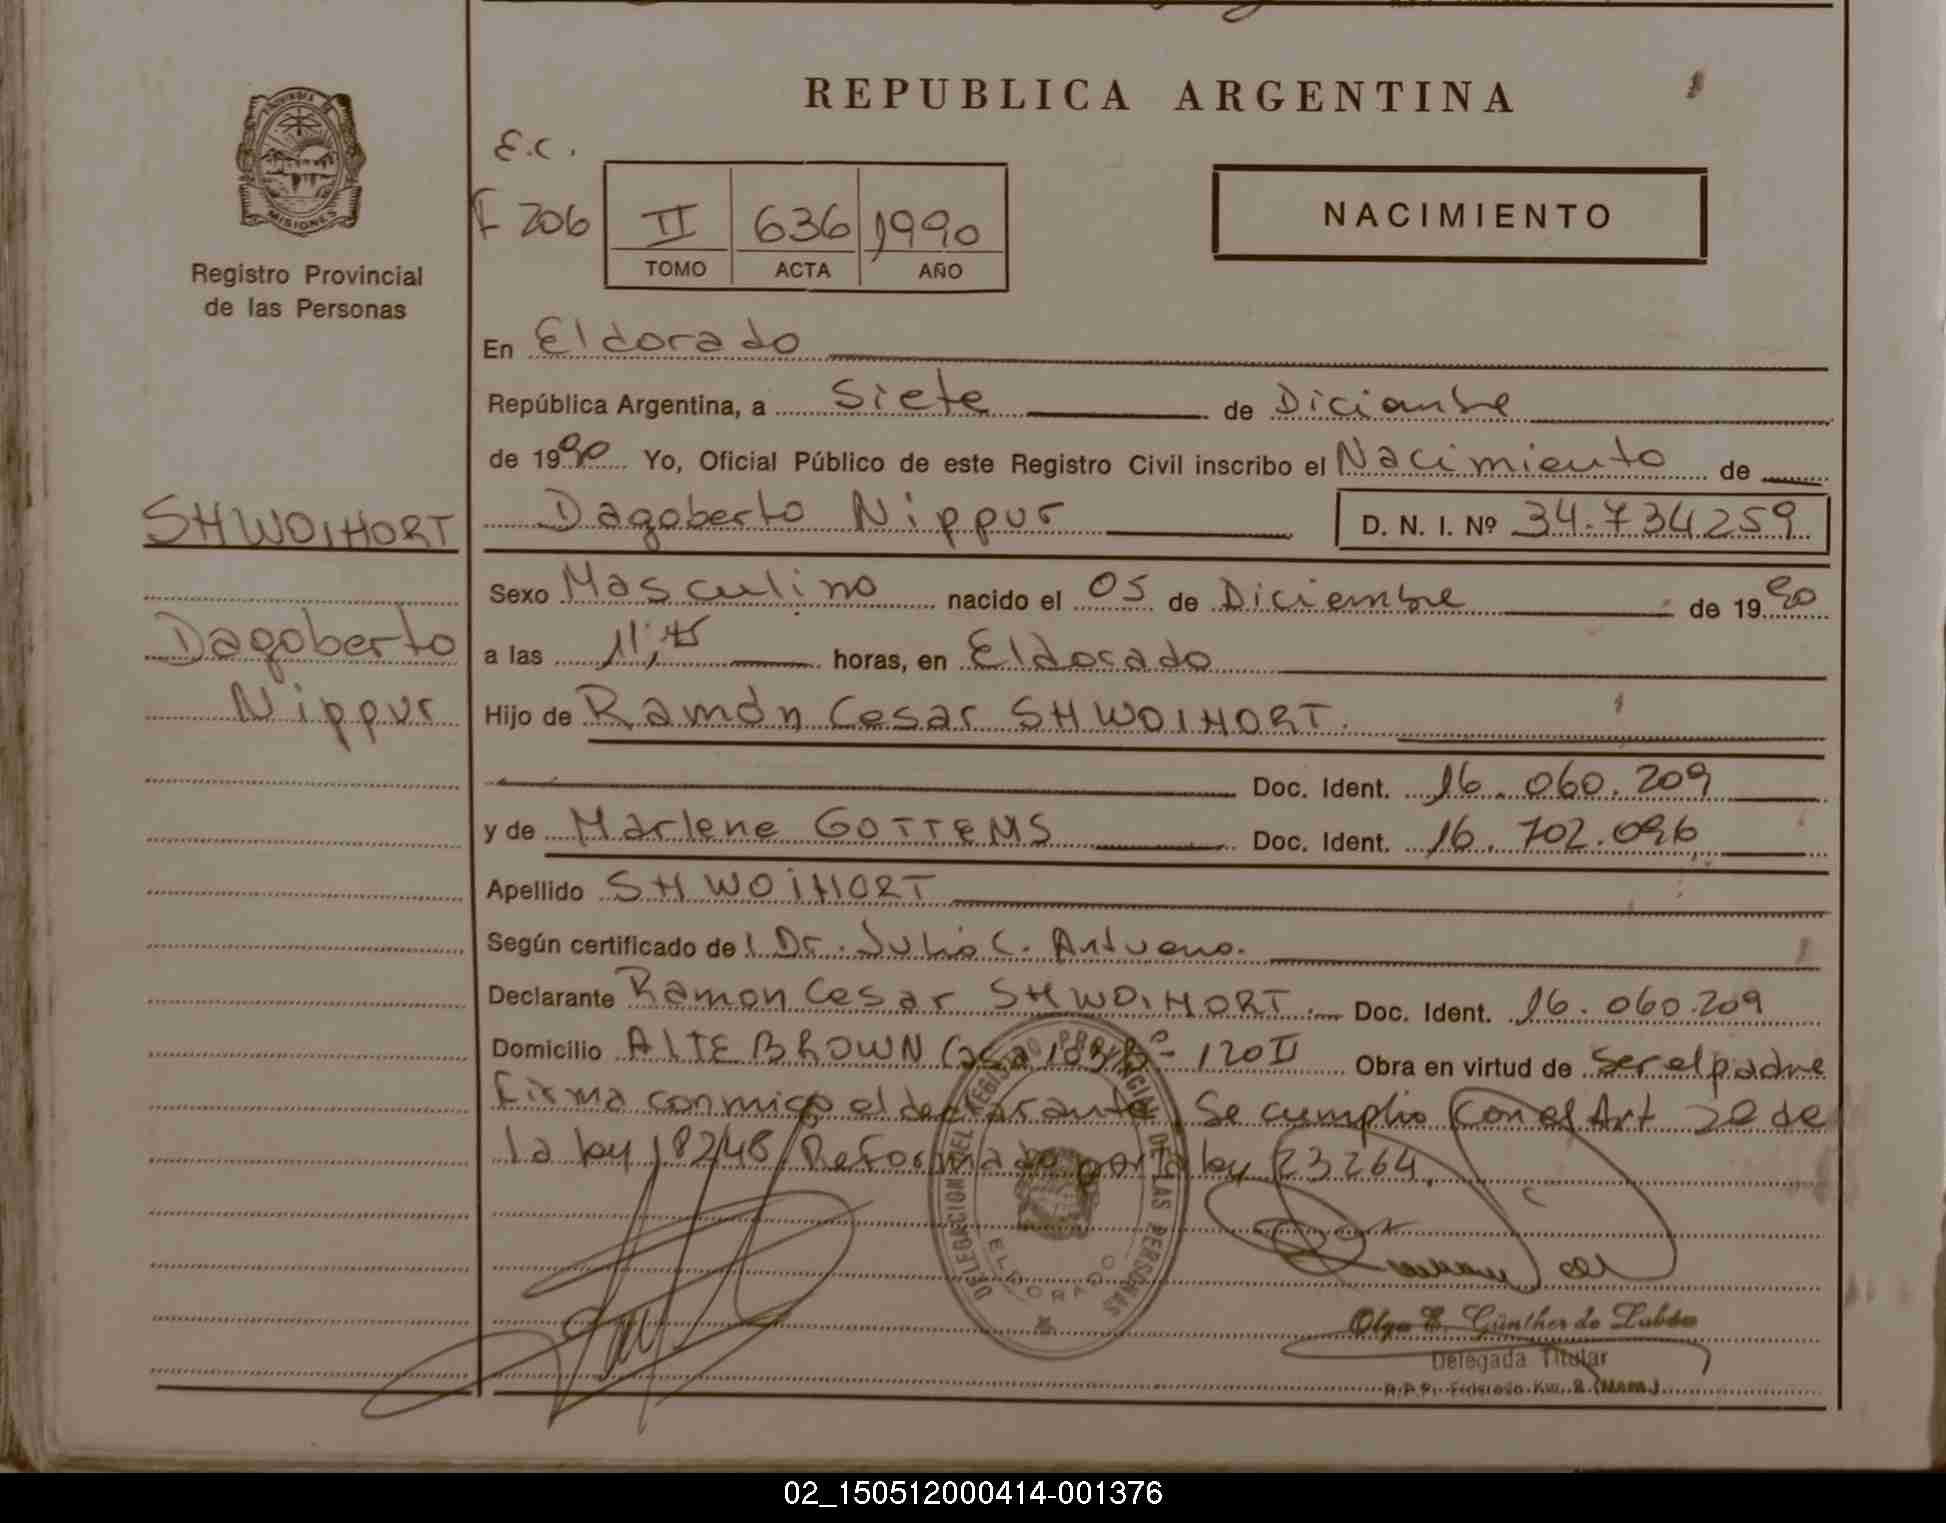 REPUBLICA ARGENTINA
PROVINCIA DE
MISIONES
Registro Provincial
de las Personas
E.C.
F 206 II 636 1990
TOMO ACTA AÑO
NACIMIENTO
En Eldorado
República Argentina, a Siete de Diciembre
de 1990 Yo, Oficial Público de este Registro Civil inscribo el Nacimiento de
SHWOIHORT
Dagoberto Nippur
D. N. I. Nº 34.734259
Sexo Masculino nacido el 05 de Diciembre de 1990
Dagoberto
Nippur
a las 11,45 horas, en Eldorado
Hijo de Ramón Cesar SHWOIHORT.
Doc. Ident. 16.060.209
y de Marlene GOTTEMS Doc. Ident. 16.702.096
Apellido SHWOIHORT
Según certificado de Dr. Julio C.
Declarante Ramon Cesar SHWOIHORT Doc. Ident. 16.060.209
Domicilio ALTE BROWN Casa 120 II Obra en virtud de Ser el padre
Firma conmigo el declarante Se cumplio con el Art 2e de
la ley 18248 Reformado por la ley 23264.
DELEGACION DEL REGISTRO PROVINCIAL DE LAS PERSONAS
ELDORADO
Olga E. Günther de
Delegada Titular
02_150512000414-001376